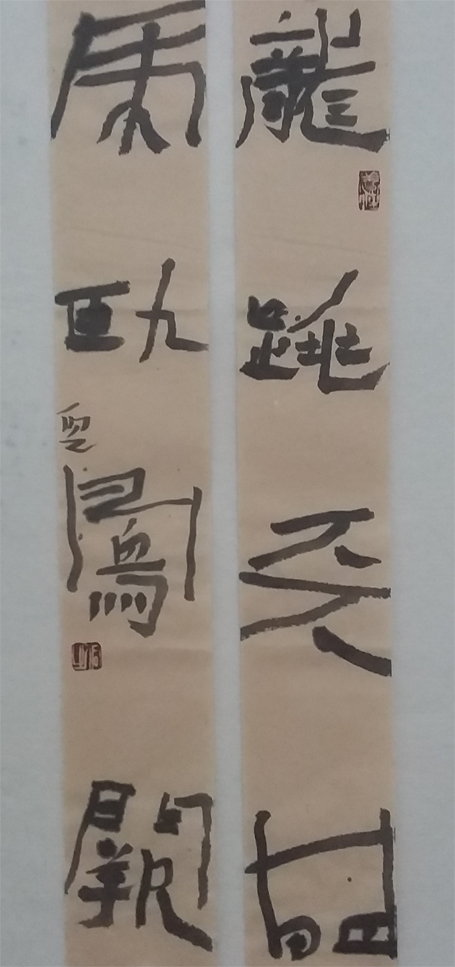 龍跳天門
虎臥鳳闕